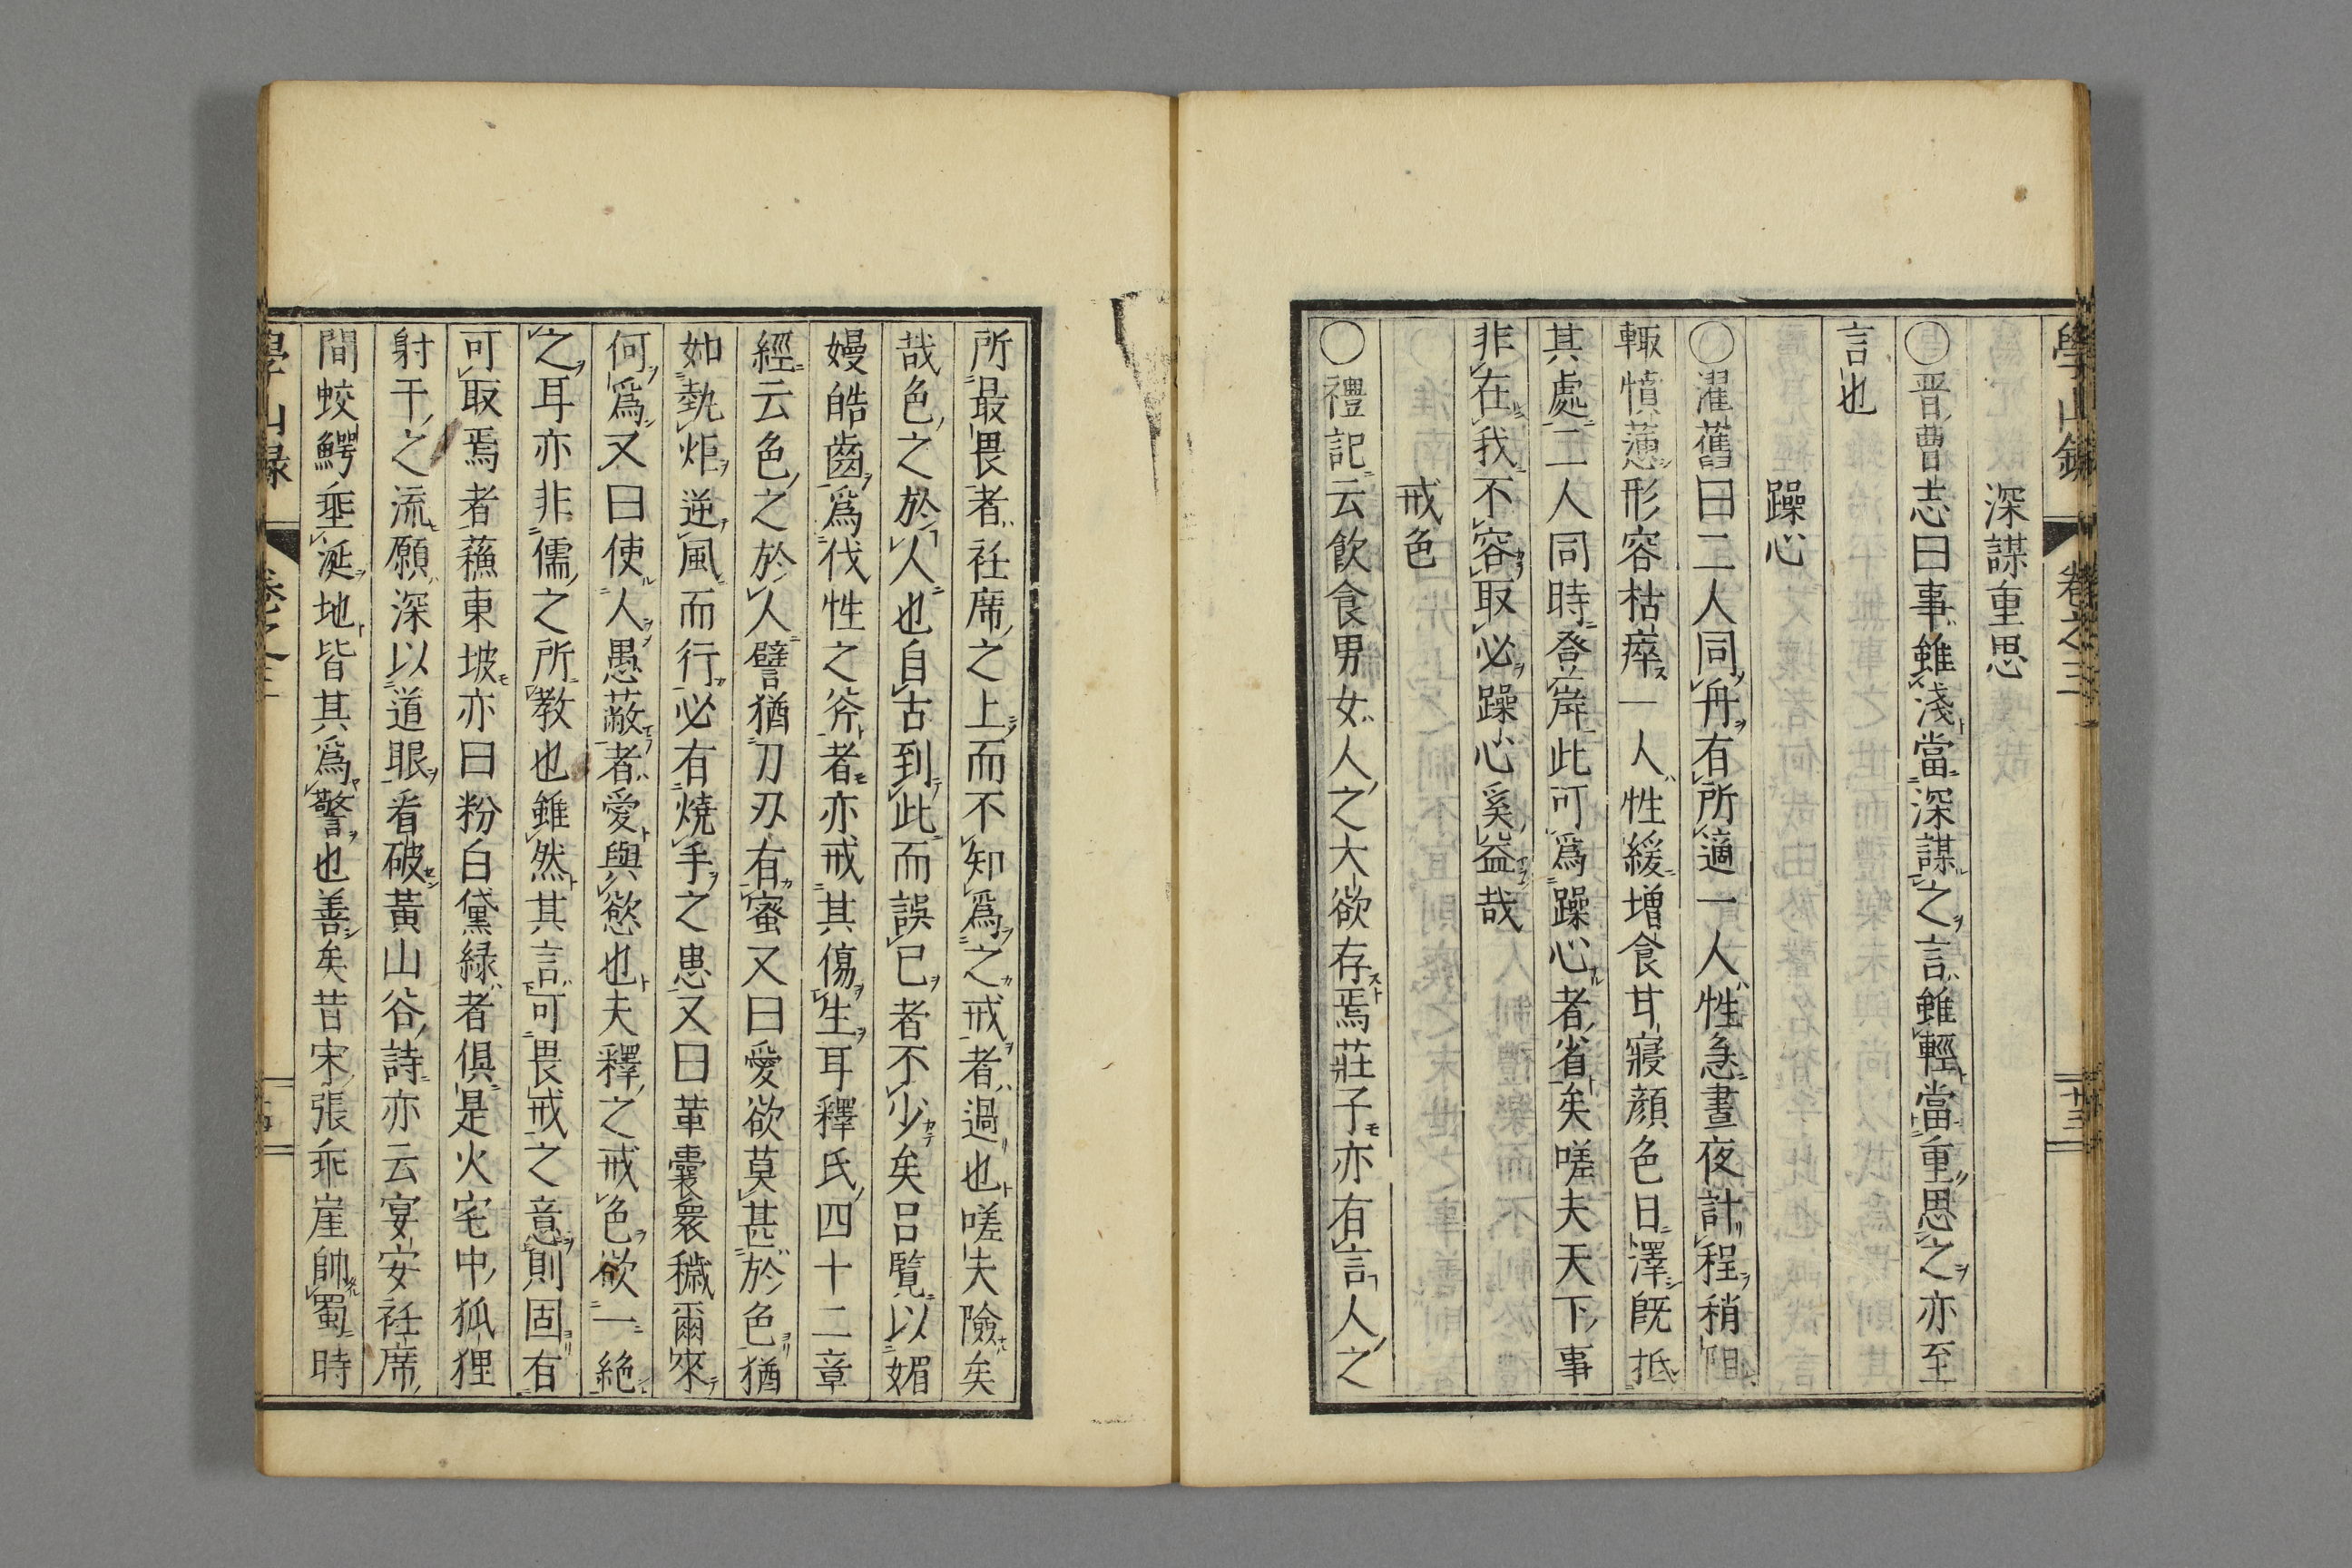 學山錄　卷之三　十三
深謀重思
○晋曹志曰事雖淺當深謀之言雖輕當重思之亦至
言也
躁心
○濯舊曰二人同舟有所適一人性急晝夜計程稍阻
輙憤懣形容枯瘁一人性緩增食甘寢顔色日澤旣抵
其處二人同時登岸此可爲躁心者省矣嗟夫天下事
非在我不容取必躁心奚益哉
戒色
○禮記云飲食男女人之大欲存焉莊子亦有言人之
所最畏者袵席之上而不知爲之戒者過也嗟夫險矣
哉色之於人也自古到此而誤已者不少矣呂覽以媚
嫚皓齒爲伐性之斧者亦戒其傷生耳釋氏四十二章
經云色之於人譬猶刀刃有蜜又曰愛欲莫甚於色猶
如執炬逆風而行必有燒手之患又曰革囊衆穢爾來
何爲又曰使人愚蔽者愛與慾也夫釋之戒色欲一絶
之耳亦非儒之所教也雖然其言可畏戒之意則固有
可取焉者蘓東坡亦曰粉白黛緑者俱是火宅中狐狸
射干之流願深以道眼看破黃山谷詩亦云宴安袵席
間蛟鰐垂涎地皆其爲警也善矣昔宋張乖崖帥蜀時
學山録　卷之三